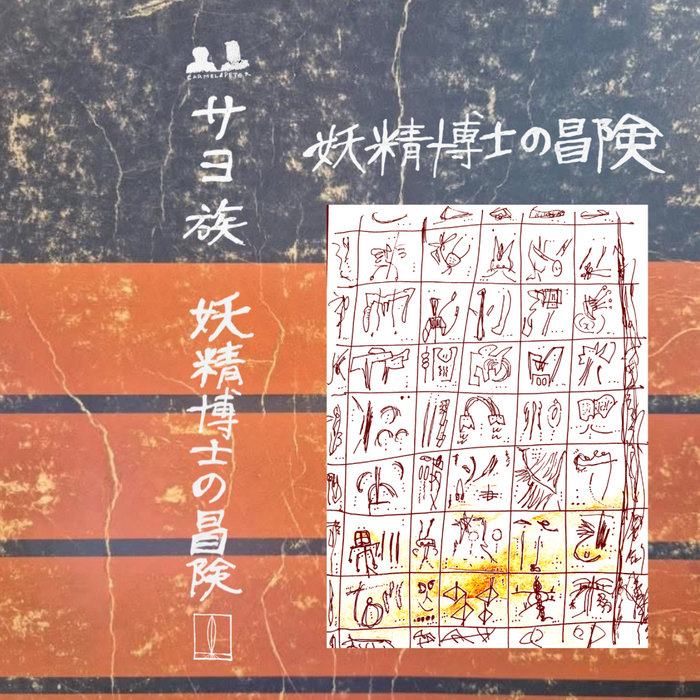 CARMELOPETER
サヨ族
妖精博士の冒険
妖精博士の冒険